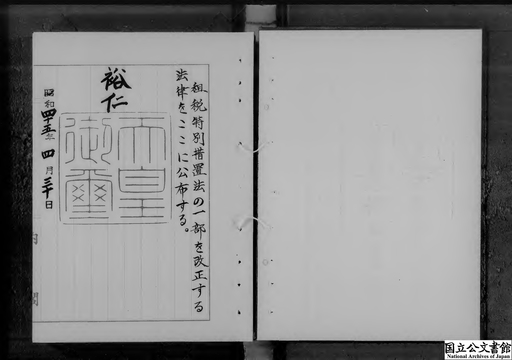 租税特別措置法の一部を改正する
法律をここに公布する。
裕仁
天皇
御璽
昭和四十五年四月三十日
内閣
国立公文書館
National Archives of Japan